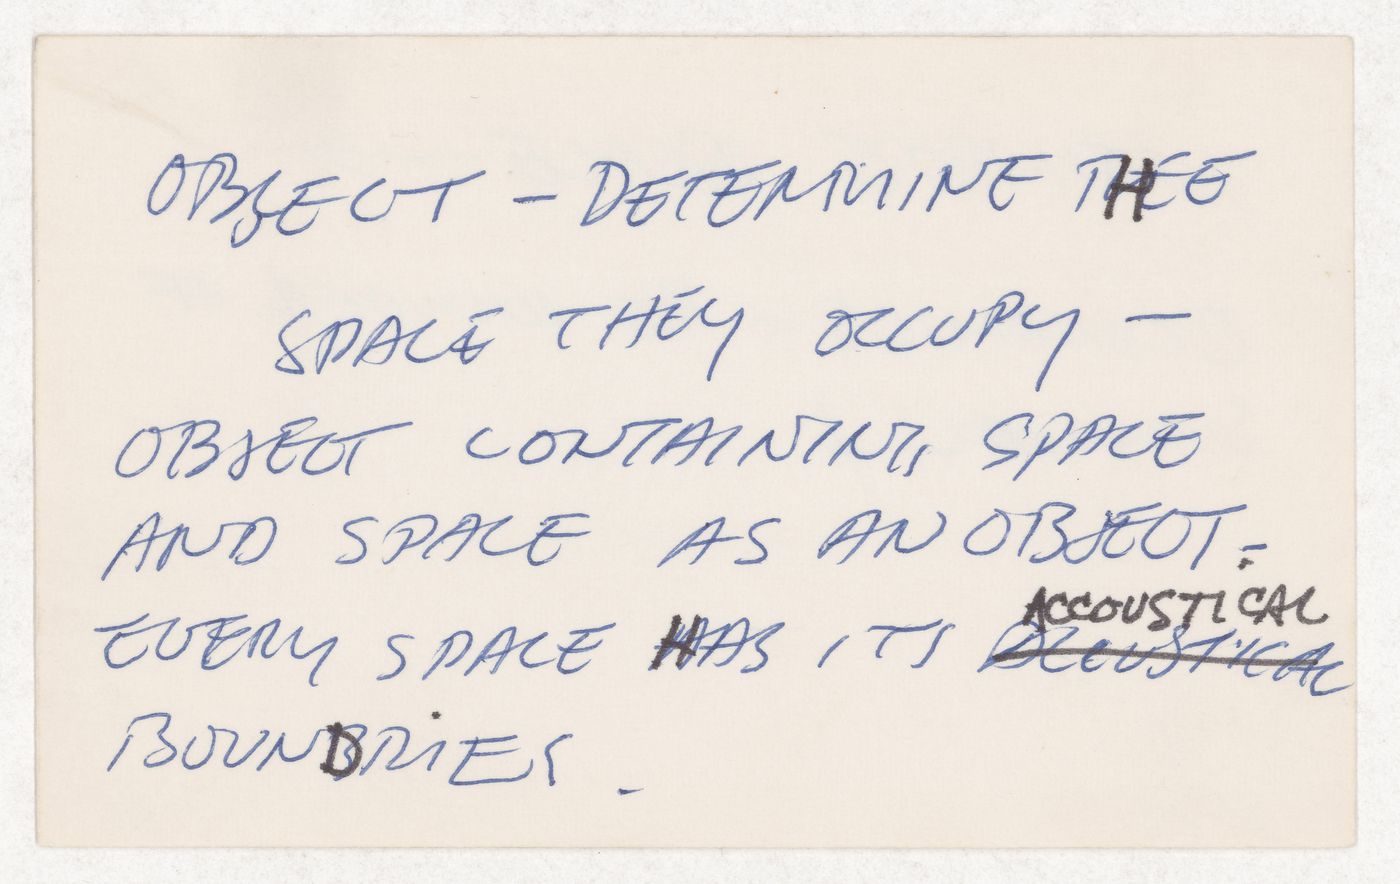 OBJECT — DETERMINE THE
SPACE THEY OCCUPY —
OBJECT CONTAINING SPACE
AND SPACE AS AN OBJECT.
ACCOUSTICAL
EVERY SPACE HAS ITS ACCOUSTICAL
BOUNDRIES.